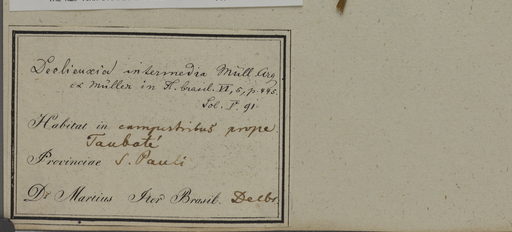 Declieuxia intermedia Müll Arg
ex Müller in Fl. brasil. VI, 5, p. 445.
Habitat in campestribus prope
Taubaté
Provinciae S. Pauli
Dr Martius Iter Brasil. Debr.